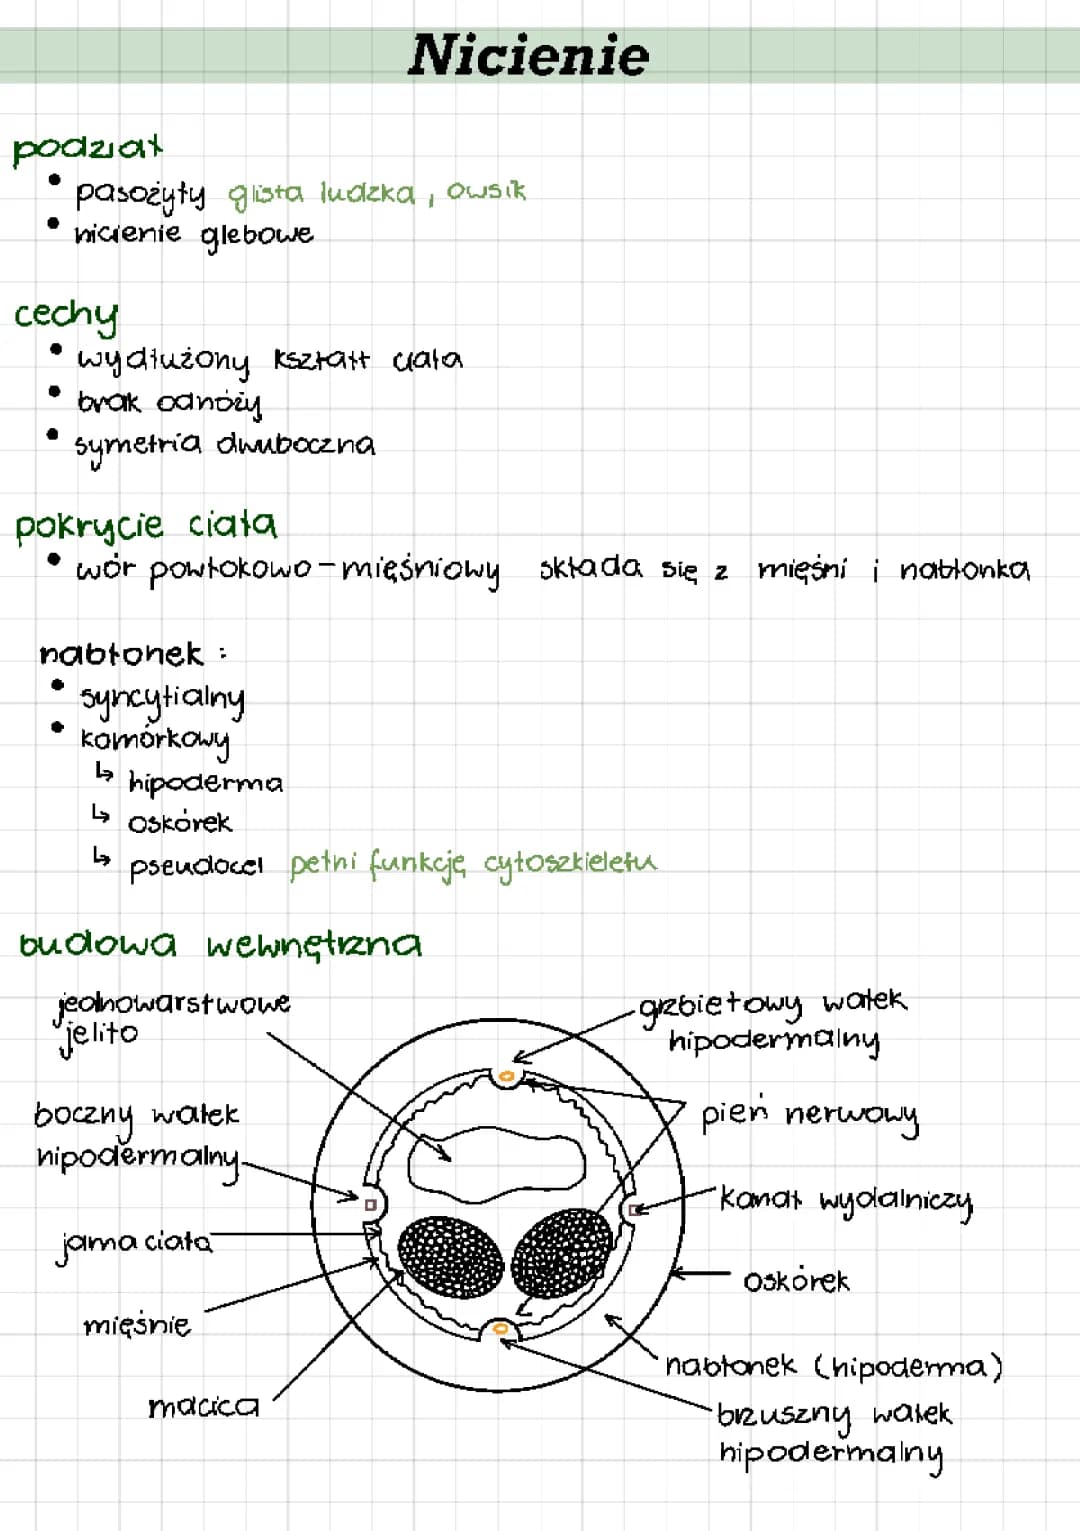 Nicienie
podział
• pasożyty glista ludzka, owsik
• nicienie glebowe
cechy
• wydłużony kształt ciała
• brak odnóży
• symetria dwuboczna
pokrycie ciała
• wór powłokowo-mięśniowy składa się z mięśni i nabłonka
nabłonek:
• syncytialny
• komórkowy
↳ hipoderma
↳ oskórek
↳ pseudocel pełni funkcję cytoszkieletu
budowa wewnętrzna
jednowarstwowe
jelito
grzbietowy wałek
hipodermalny
boczny wałek
hipodermalny
pień nerwowy
kanał wydalniczy
jama ciała
oskórek
mięśnie
nabłonek (hipoderma)
macica
brzuszny wałek
hipodermalny